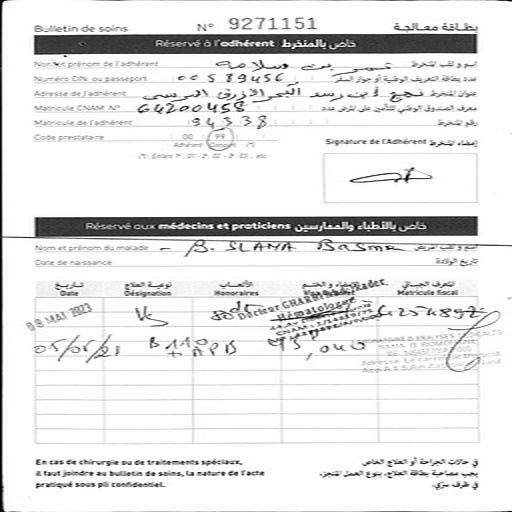 Bulletin de soins N° 9271151 بطاقة معالجة
Réservé à l'adhérent خاص بالمنخرط
Nom et prénom de l'adhérent عمر بن سلامة اسم و لقب المنخرط
Numéro CIN ou passeport 00589456 عدد بطاقة التعريف الوطنية أو جواز السفر
Adresse de l'adhérent نهج ابن رشد البحر الأزرق المرسى عنوان المنخرط
Matricule CNAM N° 64200458 معرف الصندوق الوطني للتأمين على المرض عدد
Matricule de l'adhérent 94338 رقم المنخرط
Code prestataire 00 99
Adhérent Conjoint (*)
(*) : Enfant 1er : 01 - 2e : 02 - 3e : 03 ... etc
Signature de l'Adhérent إمضاء المنخرط
Réservé aux médecins et praticiens خاص بالأطباء والممارسين
Nom et prénom du malade B. SLAMA Basma اسم و لقب المريض
Date de naissance تاريخ الولادة
تاريخ نوعية العلاج الأتعاب الإمضاء و الختم المعرف الجبائي
Date Désignation Honoraires Matricule fiscal
09 MAI 2023 Docteur
Hématologue
B 110
+ APB
LABORATOIRE D'ANALYSES MEDICALES
En cas de chirurgie ou de traitements spéciaux,
il faut joindre au bulletin de soins, la nature de l'acte
pratiqué sous pli confidentiel.
في حالات الجراحة أو العلاج الخاص
يجب مصاحبة بطاقة العلاج، بنوع العمل المنجز،
في ظرف سري.